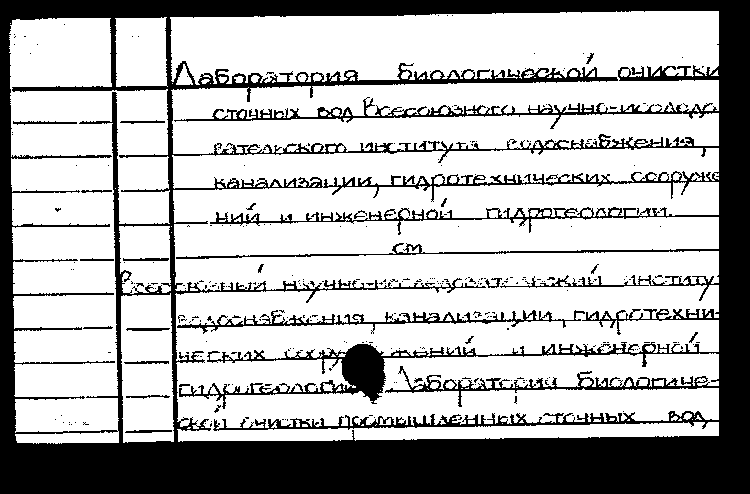 Лаборатория биологической очистки
сточных вод Всесоюзного научно-исследо
вательского института водоснабжения,
канализации, гидротехнических сооруже
ний и инженерной гидрогеологии.
см
Всесоюзный научно-исследовательский институт
водоснабжения, канализации, гидротехни-
ческих сооружений и инженерной
гидрогеологии. Лаборатория биологиче-
ской очистки промышленных сточных вод